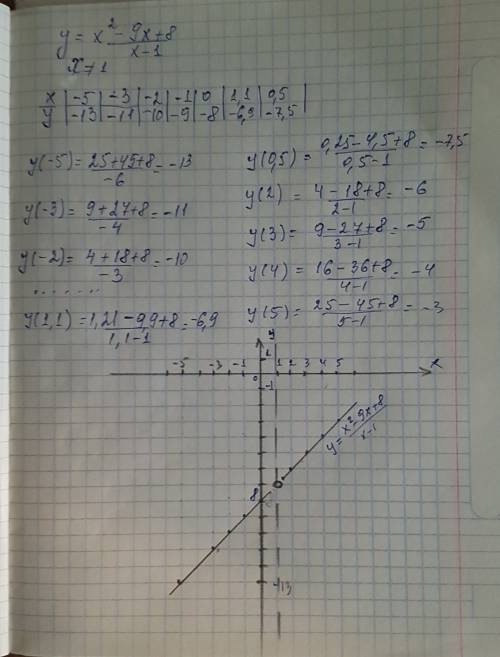 y = x² - 9x + 8 / x - 1
x ≠ 1
x | -5 | -3 | -2 | -1 | 0 | 1,1 | 0,5 |
y | -13 | -11 | -10 | -9 | -8 | -6,9 | -7,5 |
y(-5) = 25+45+8 / -6 = -13
y(-3) = 9+27+8 / -4 = -11
y(-2) = 4+18+8 / -3 = -10
.......
y(1,1) = 1,21 - 9,9+8 / 1,1-1 = -6,9
y(0,5) = 0,25-4,5+8 / 0,5-1 = -7,5
y(2) = 4-18+8 / 2-1 = -6
y(3) = 9-27+8 / 3-1 = -5
y(4) = 16-36+8 / 4-1 = -4
y(5) = 25-45+8 / 5-1 = -3
y
1
-5 -3 -2 -1 0 1 2 3 4 5 x
-1
y = x²-9x+8 / x-1
8
-13